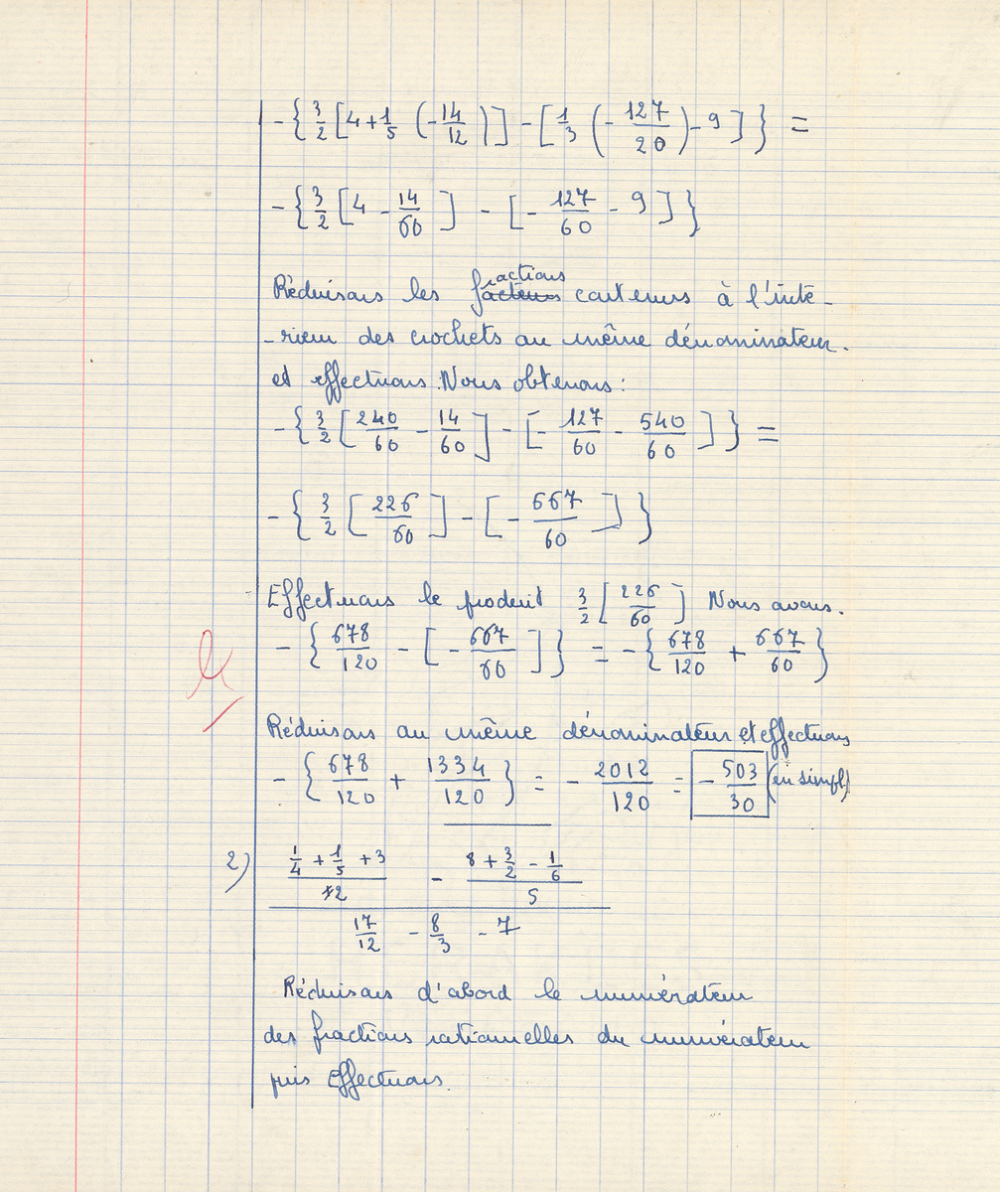 -{3/2[4+1/5(-14/12)]-[1/3(-127/20)-9]}=
-{3/2[4-14/60]-[-127/60-9]}
Réduisons les fractions contenus à l'inté-
-rieur des crochets au même dénominateur.
et effectuons. Nous obtenons:
-{3/2[240/60-14/60]-[-127/60-540/60]}=
-{3/2[226/60]-[-667/60]}
Effectuons le produit 3/2[226/60] Nous avons.
-{678/120-[-667/60]}=-{678/120+667/60}
Réduisons au même dénominateur et effectuons
-{678/120+1334/120}=-2012/120=-503/30 (en simpl)
2) ((1/4+1/5+3)/12-(8+3/2-1/6)/5)/(17/12-8/3-7)
Réduisons d'abord le numérateur
des fractions rationnelles du numérateur
puis Effectuons.